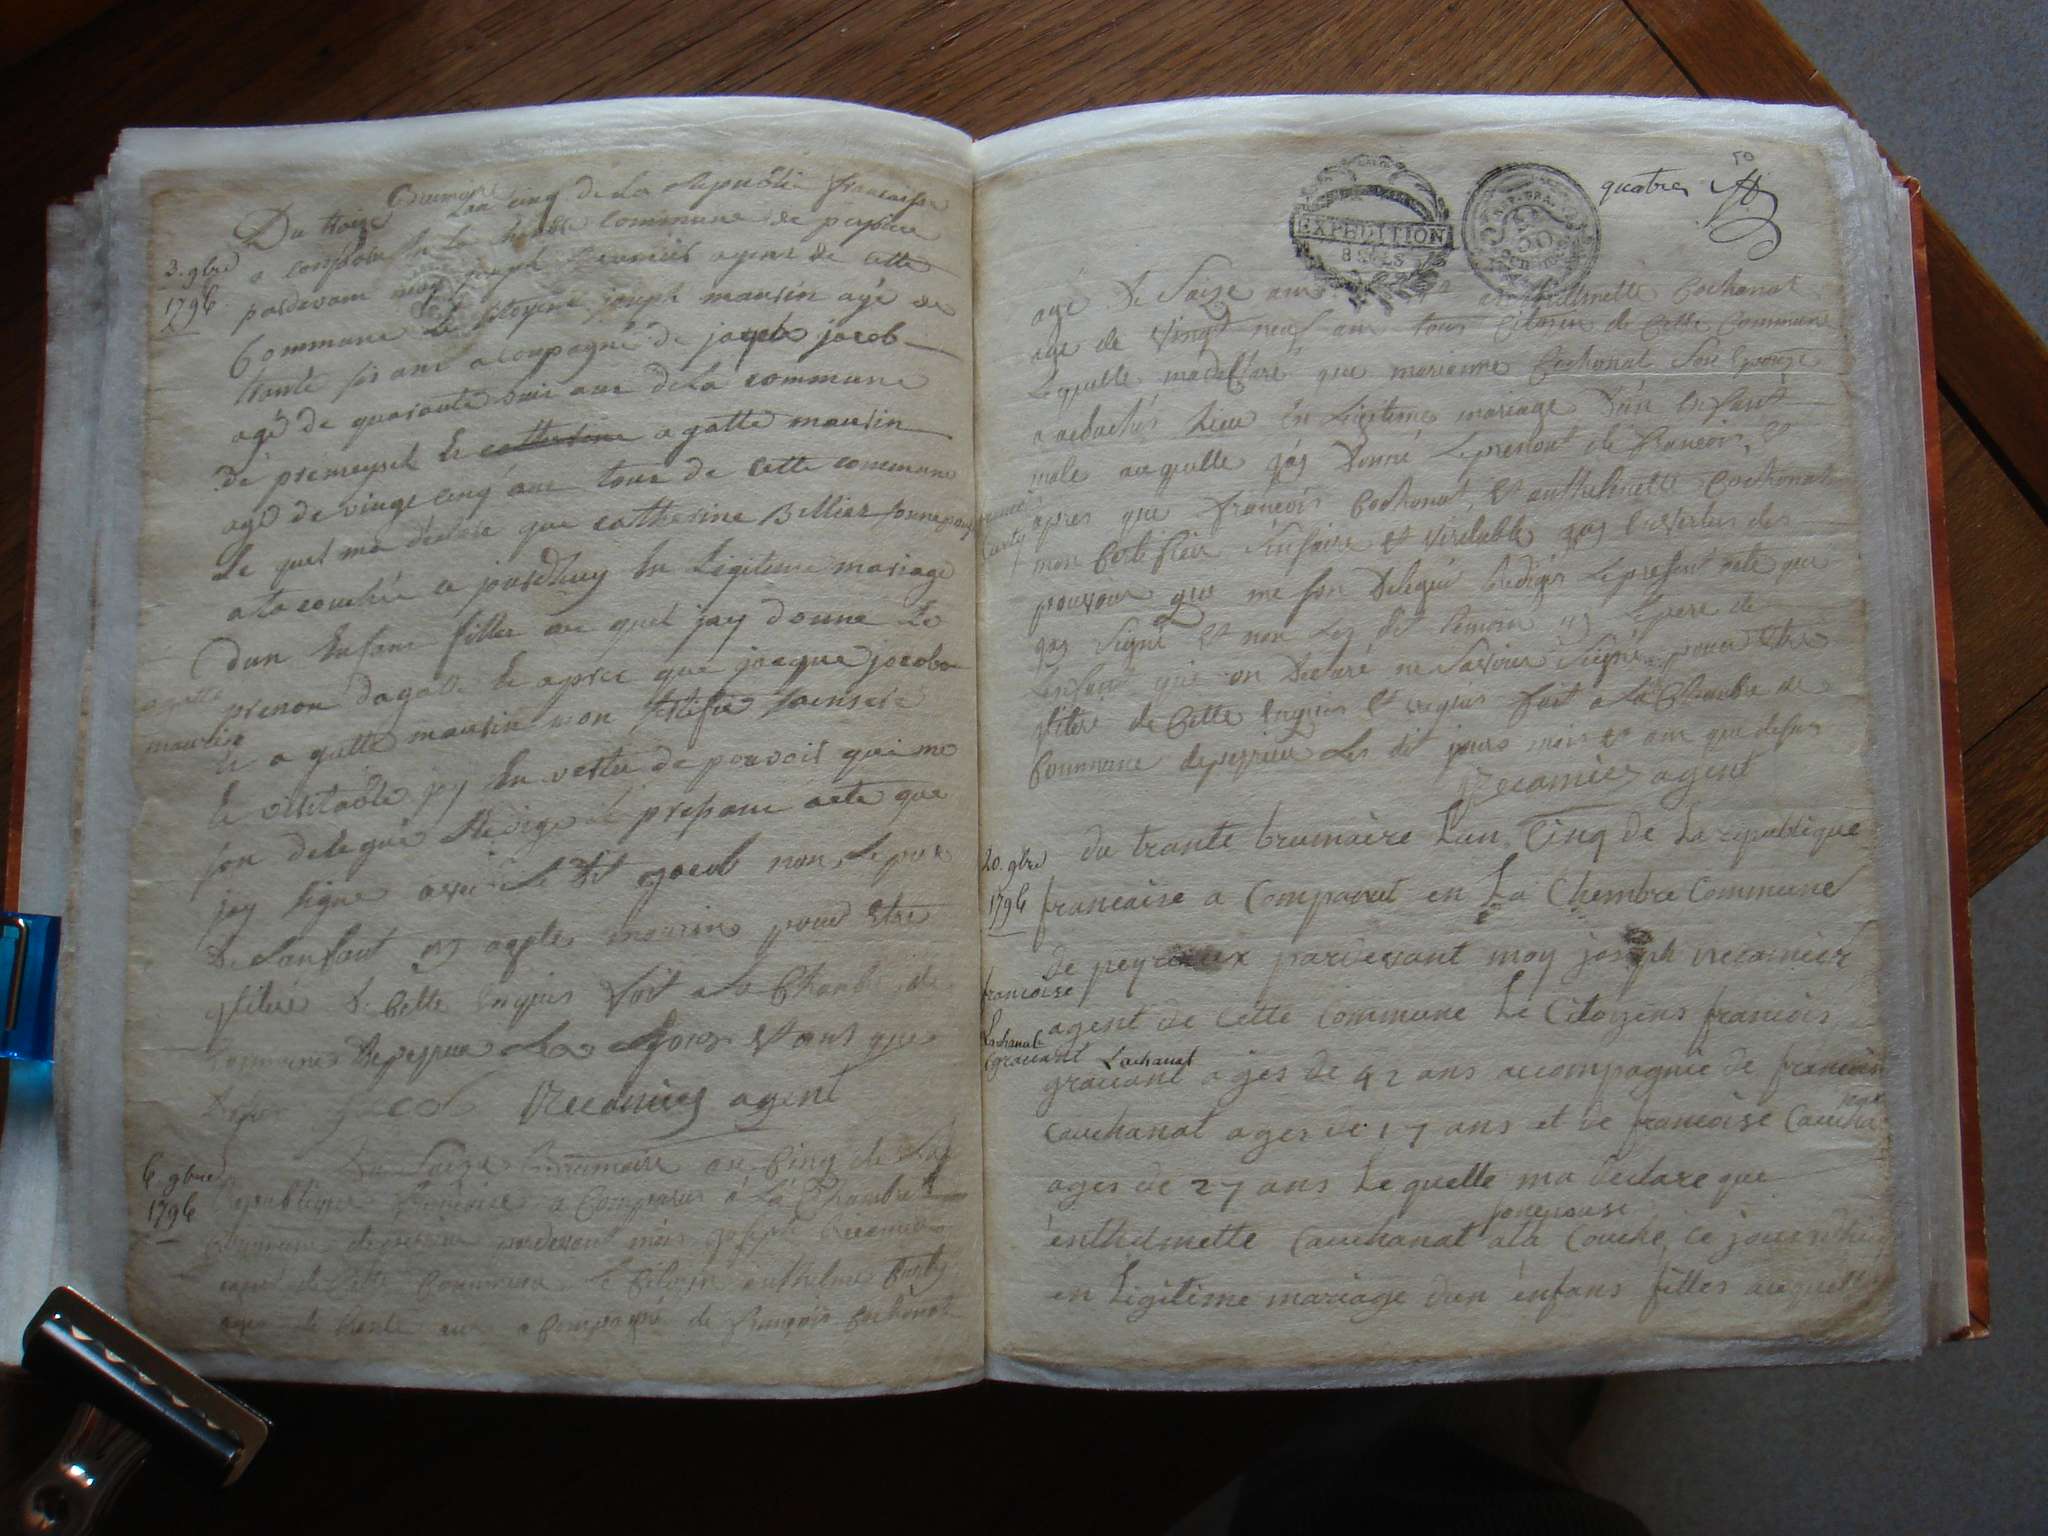 Du traize Brumaire Lan cinq de La Republic francaisse
3. 9bre
1796
a comparu en La Chambre Commune de peyrieu
pardevant moy joseph Recamier agent de cette
Commune Le Citoyent joseph maurin agé de
trante sis ans acompagné de joseph jacob
agé de quarante ans de La commune
de premeysel et catherine agatte maurin
agé de vingt cinq ans tous de cette commune
Le quel ma declare que catherine Billier sonnepouse
a la couchée a jourdhuy en Legitime mariage
dun enfant filles au quel jay donne Le
agatte
maurin
prenon dagatte et apres que jacque jacob
et agatte maurin mon sertifie saensere
et veritable jay en vertu de pouvoir qui me
son delegué Redige Le presant acte que
jay signe avec Le dit jacob non Le pere
De Lanfant ny agate maurin pour etre
ilitere De Cette enquis fait a La Chambre de
Commune de peyrieu Les jour et ans que
Desus jacob Recamier agent
6. 9bre
1796
Du Saize brumaire an Cinq de La
Republique francoise a Comparus a La Chambre
Commune de peyrieu pardevant mois joseph Recamier
agent de Cette Commune Le Citoien anthelme Curty
agé de trente ans acompagné de francois Cochonat
50
quatre
EXPEDITION
8 SOLS
agé De Saize ans anthelmette Cochonat
agé de vingt neuf ans tous Citoien de Cette Commune
Lequelle ma desclaré que marianne Cochonat Son Epouze
a acouchés en Legitime mariage D'un enfant
male auquelle jay Donné Le prenont de francois Et
francois
Curty
apres que francois Cochonat, et anthelmette Cochonat
mon Certifier Sinsaire et veritable jay en vertus des
pouvoir que me son Delegué Rediger Le present acte que
jay Signé et non Les dit temoin ny Le pere de
Lenfant qui on Declaré ne Savoire Signé pour etre
ilitere de Cette enquis et requis fait a La Chambre de
Commune de peyrieu Les dit jours mois et an que desus
Recamier agent
20. 9bre
1796
du trante brumaire Lan Cinq de La republique
francaise a Comparut en La Chembre Commune
de peyrieux pardevant moy joseph recamier
francoise
Lachanal
gravant
agent de cette commune Le Citoyens francois
gravant Lachanal ages de 42 ans accompagnie de francois
Cauchanat ages de 17 ans et de francoise Caucha
nat
ages de 27 ans Lequelle ma declare que
enthelmette Cauchanat sonepouse ala Couche ce jourdhuy
en Legitime mariage dun enfans filles auquelle